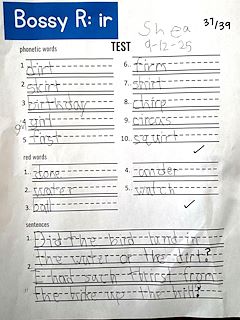 Bossy R: ir
Shea
37/39
9-12-25
phonetic words
TEST
1. dirt
2. skirt
3. birthday
4. girl
5. first
6. firm
7. shirt
8. chirp
9. circus
10. squirt
red words
1. done
2. water
3.
4.
5. watch
sentences
1. Did the bird land in
the water or the dirt?
2. I had such thirst from
the hike up the hill!